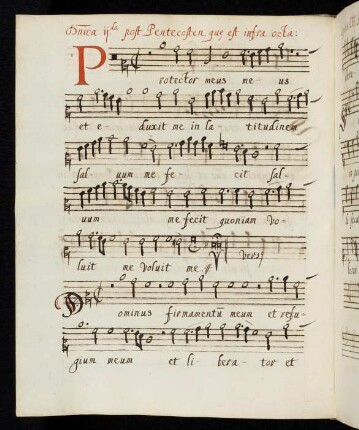 Dnica ij da post Pentecosten que est infra octa:
Protector meus me us
et e duxit me in la titudinem
sal uum me fe cit sal
uum me fecit quoniam vo
luit me voluit me. Vers/
Dominus firmamentu meum et refu
gium meum et li bera tor et